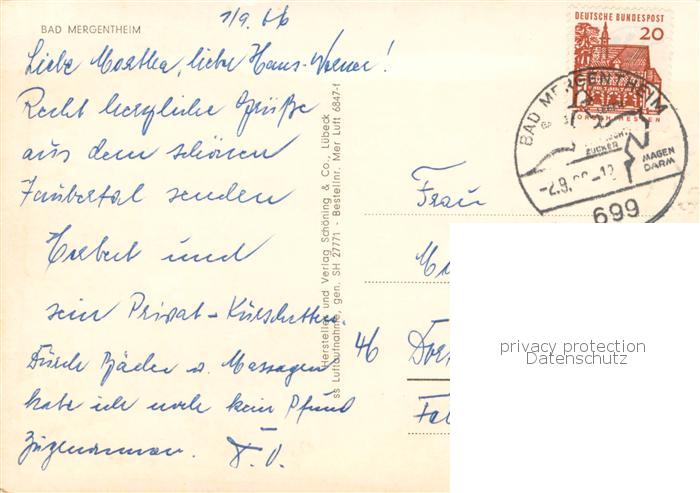 BAD MERGENTHEIM
1/9.66
Liebe Martha, liebe Hans-Werner!
Recht herzliche Grüße
aus dem schönen
Taubertal senden
Norbert und
sein Privat-Kurschatten.
Durch Bäder u. Massagen
habe ich noch kein Pfund
zugenommen. F.V.
Hersteller und Verlag Schöning & Co., Lübeck
ss Luftaufnahme, gen. SH 27771 - Bestellnr. Mer Luft 6847-f
DEUTSCHE BUNDESPOST
20
BAD MERGENTHEIM
ZUCKER
MAGEN
DARM
-2.9.66-12
699
Frau
46
privacy protection
Datenschutz